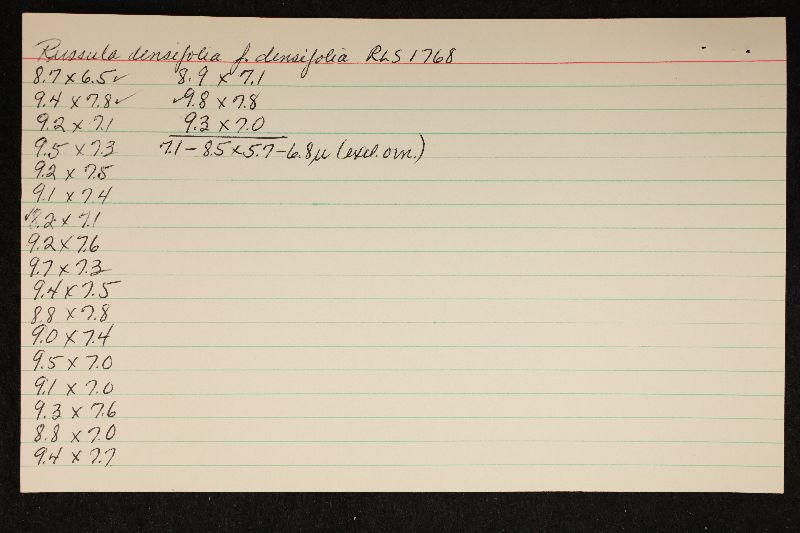 Russula densifolia f. densifolia RLS 1768
8.7 x 6.5 ✓ 8.9 x 7.1
9.4 x 7.8 ✓ ✓9.8 x 7.8
9.2 x 7.1 9.3 x 7.0
9.5 x 7.3 7.1 - 8.5 x 5.7 - 6.8 μ (excl. orn.)
9.2 x 7.5
9.1 x 7.4
✓8.2 x 7.1
9.2 x 7.6
9.7 x 7.3
9.4 x 7.5
8.8 x 7.8
9.0 x 7.4
9.5 x 7.0
9.1 x 7.0
9.3 x 7.6
8.8 x 7.0
9.4 x 7.7